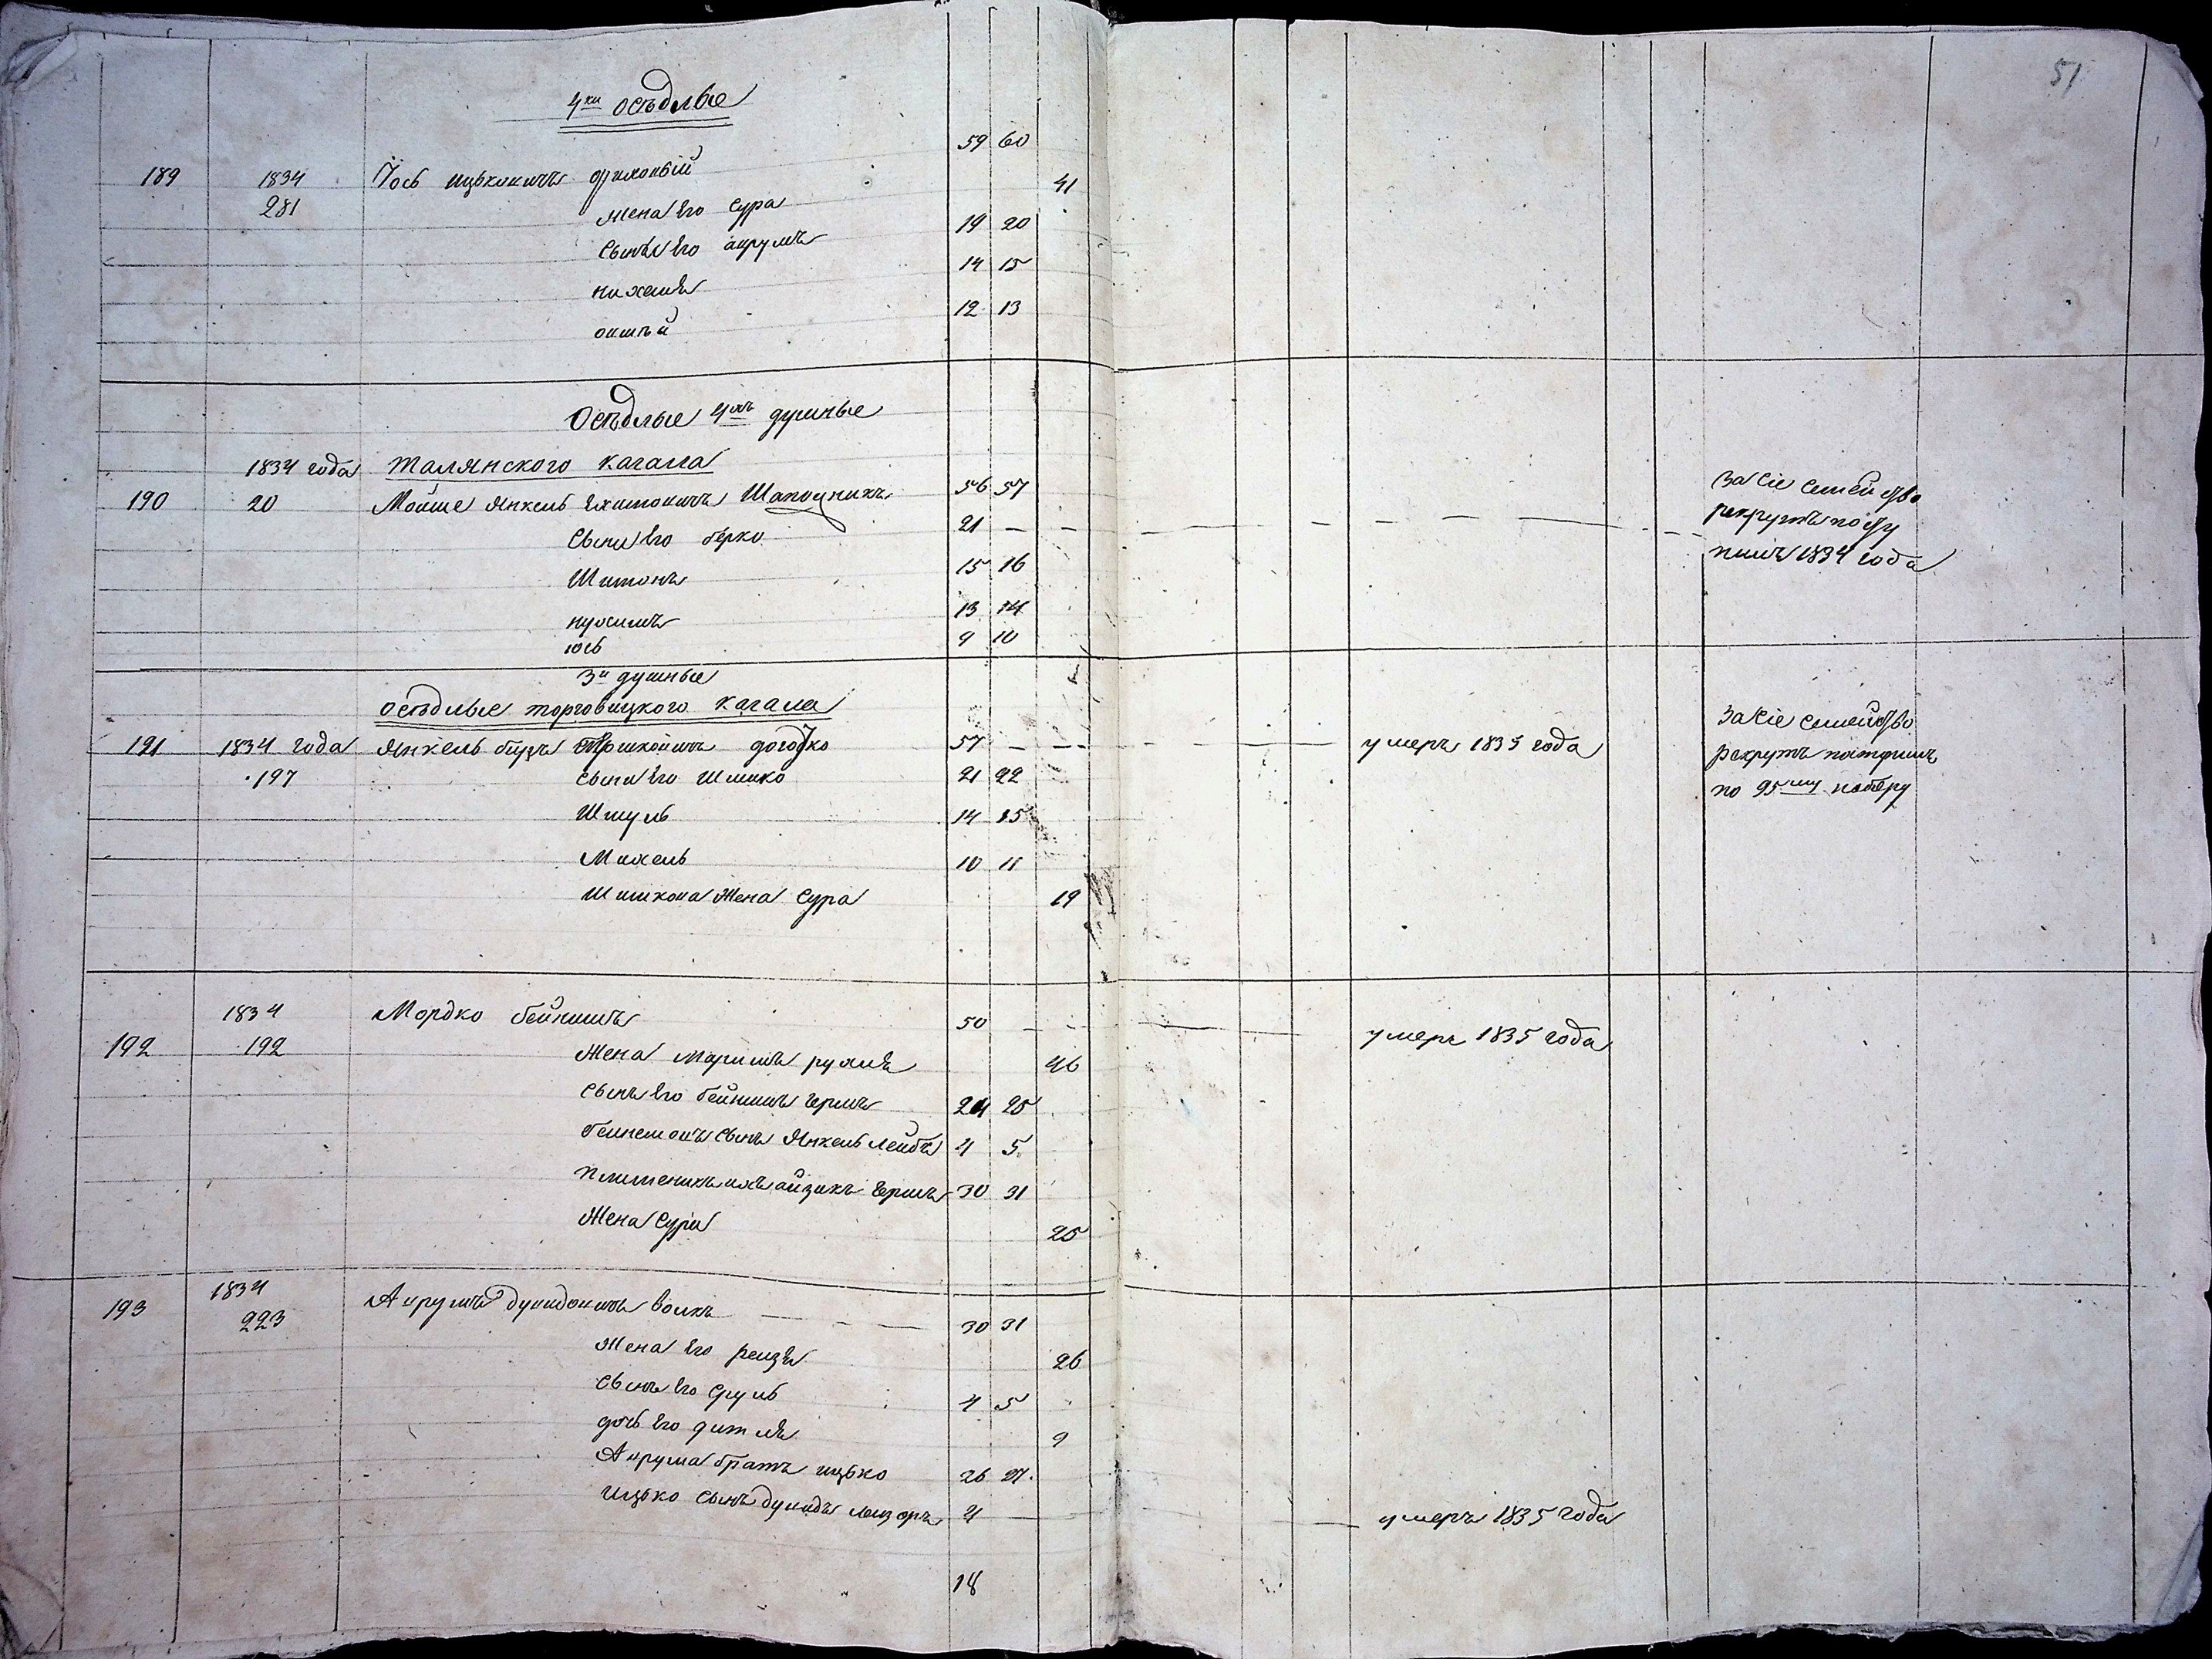 51
4ки осѣдлые
59 60
189 1834 Іось Ицьковичъ 41
281 жена Его Сура
19 20
Сынъ Его аврумъ
14 15
12 13
Осѣдлые 4хъ душные
1834 года Талянского кагала
190 20 Мойше Янкель Шапочникъ 56 57
Сыны Его берко 21 — —
Шимонъ 15 16
нусимъ 13 14
юсь 9 10
За сіе семейство
рекрутъ посту
пилъ 1834 года
3и душные
осѣдлые торговицкого кагала
191 1834 года Янкель 57 — — умеръ 1835 года
197 сыны Его Шмико 21 22
Шмуль 14 15
Михель 10 11
Шмикова Жена Сура 19
За сіе семейство
рекрутъ
по 95му набору
1834 Мордко бейнишъ 50 — — умеръ 1835 года
192 192 Жена рухля 46
Сынъ Его бейнишъ Гершъ 24 25
сынъ Янкель Лейбъ 4 5
Племеникъ ихъ айзикъ Гершъ 30 31
Жена Сура 25
193 1834 Аврумъ Дувидовичъ волкъ 30 31
223
Жена Его рейзя 26
Сынъ Его Сруль 4 5
дочь Его 9
Аврума братъ ицько 26 27
Ицько сынъ дувидъ лейзоръ 4 — умеръ 1835 года
18